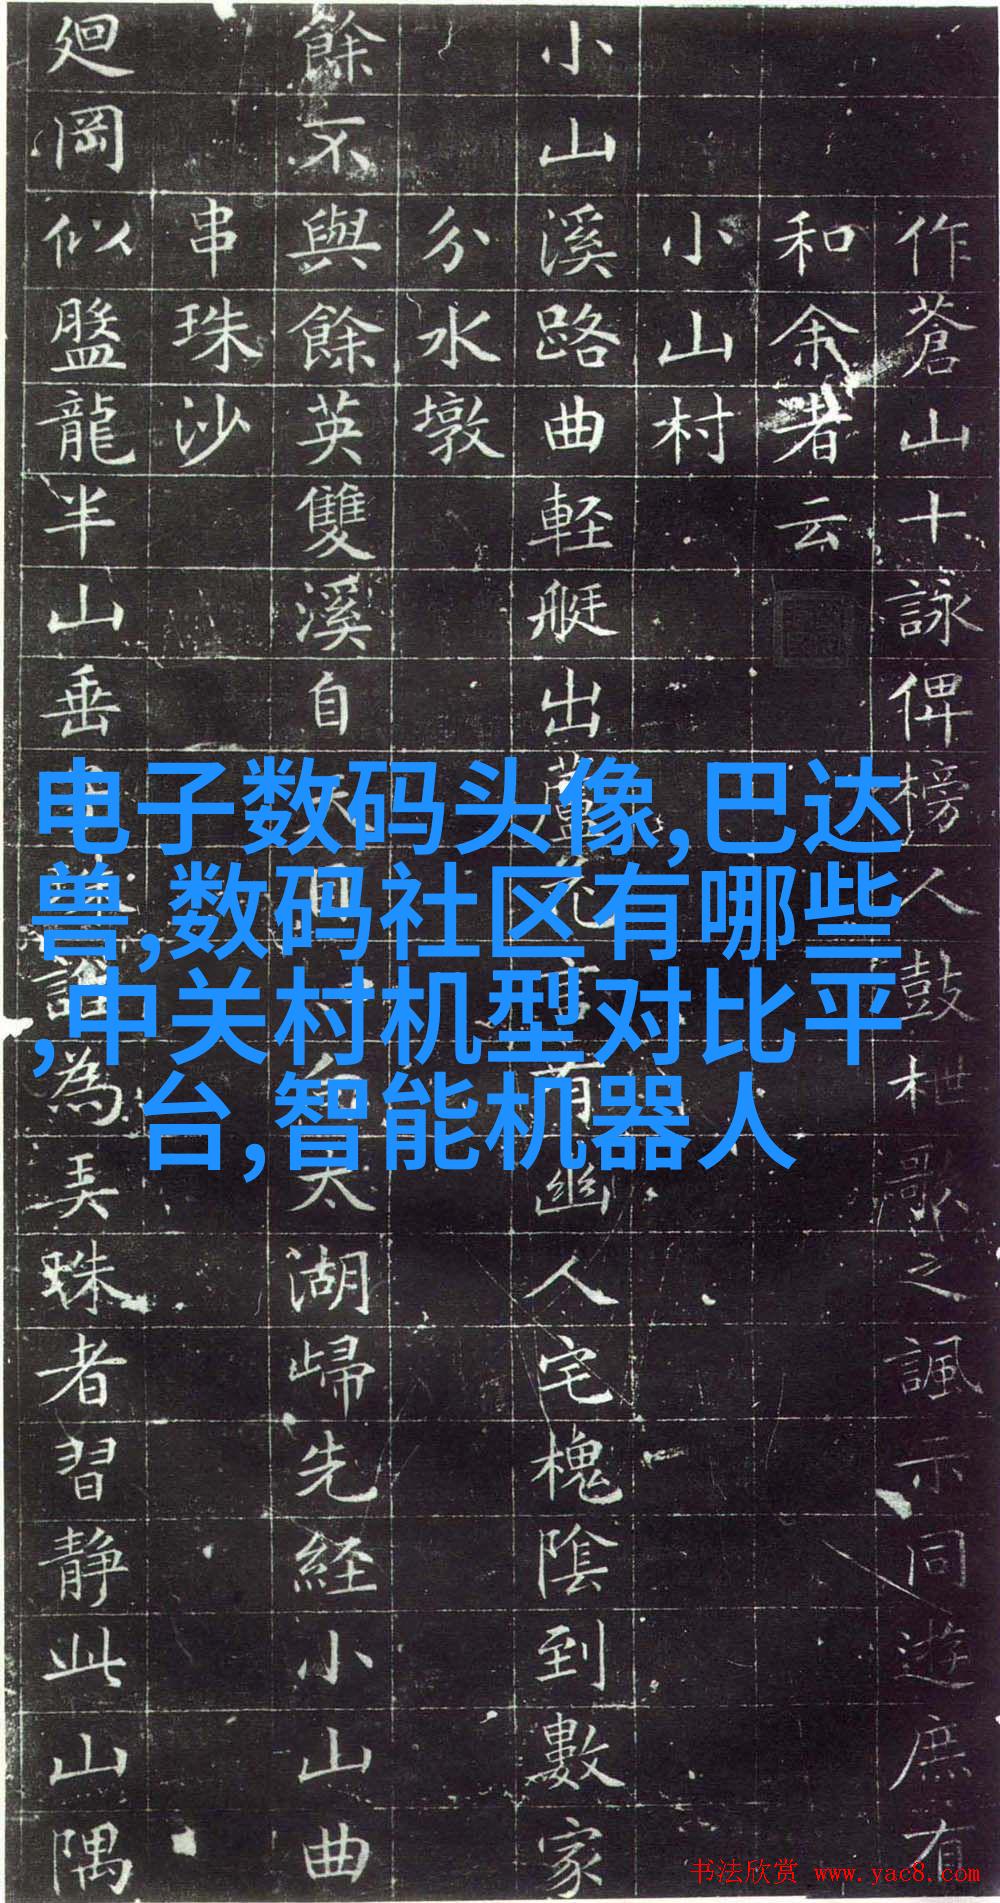 作蒼山十詠俾榜人鼓枻歌之諷示同遊庶有
和余者云
小山村
小山溪路曲軽艇出蘆花言有幽人宅槐陰到數家
分水墩
餘不與餘英雙溪自天目太湖歸先経小山曲
串珠沙
廻岡似盤龍半山垂為弄珠者習静此山隅
电子数码头像,巴达
兽,数码社区有哪些
,中关村机型对比平
台,智能机器人
书法欣赏 www.yac8.com